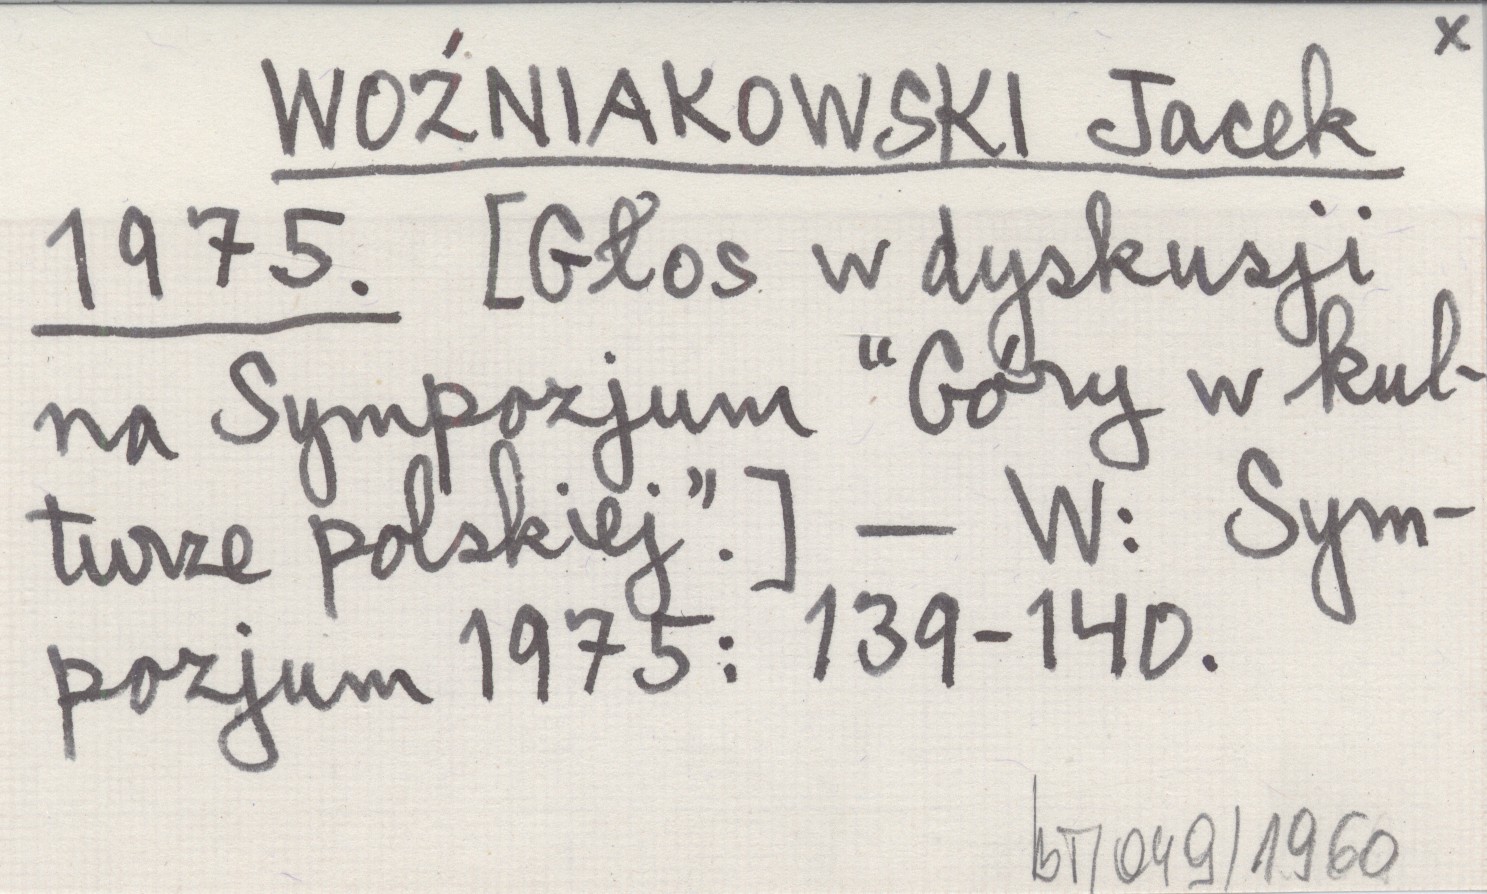 x
WOŹNIAKOWSKI Jacek
1975. [Głos w dyskusji
na Sympozjum “Góry w kul-
turze polskiej”.] — W: Sym-
pozjum 1975: 139-140.
bT/049/1960